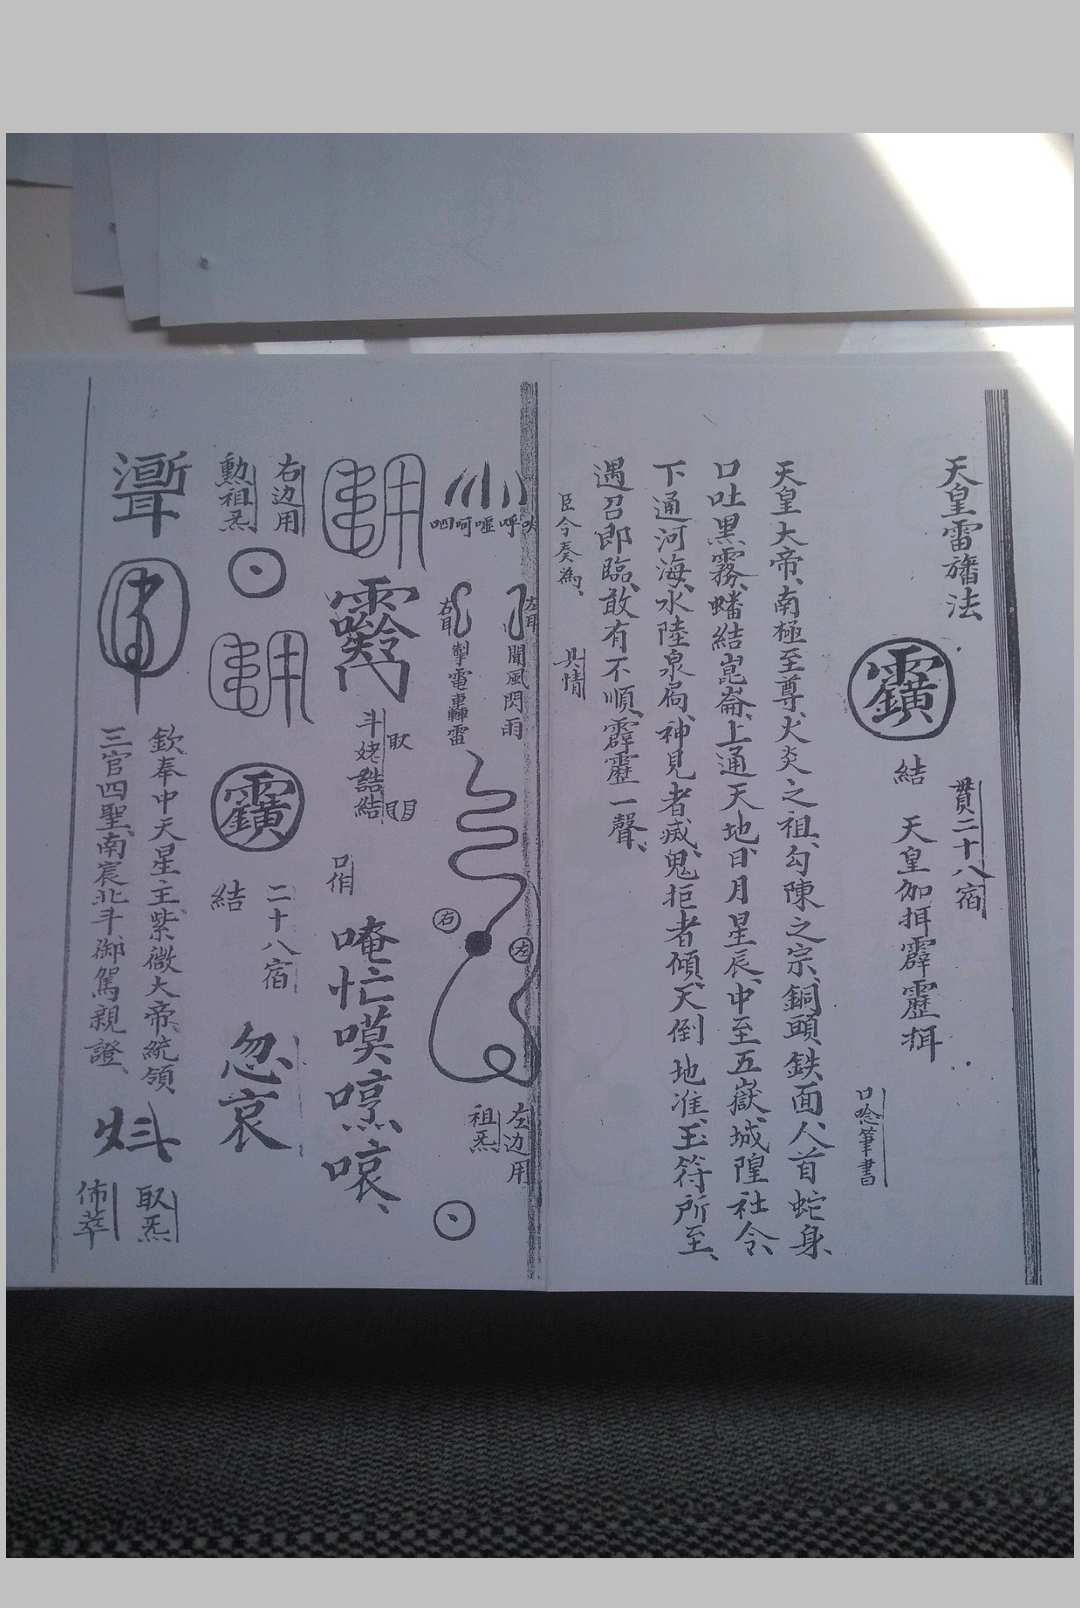 天皇雷旛法
貫二十八宿
結　天皇伽揖霹靂揖
口唸筆書
天皇大帝、南極至尊、火炎之祖、勾陳之宗、銅頭鉄面、人首蛇身、
口吐黑霧、蟠結崑崙、上通天地、日月星辰、中至五嶽、城隍社令、
下通河海、水陸泉扃、神見者滅、鬼拒者傾、天倒地准、玉符所至、
遇召即臨、敢有不順、霹靂一聲、
臣今奏為、　具情
呼啞呵呬
左耳
聞風閃雨
右耳
掣電轟雷
右
左
左边用
祖炁
取
斗姥誥結
口作
唵忙嘆
右边用
勳祖炁
二十八宿
結
忽哀
欽奉中天星主、紫微大帝、統領
三官四聖、南宸北斗、御駕親證、
取炁
佈莘